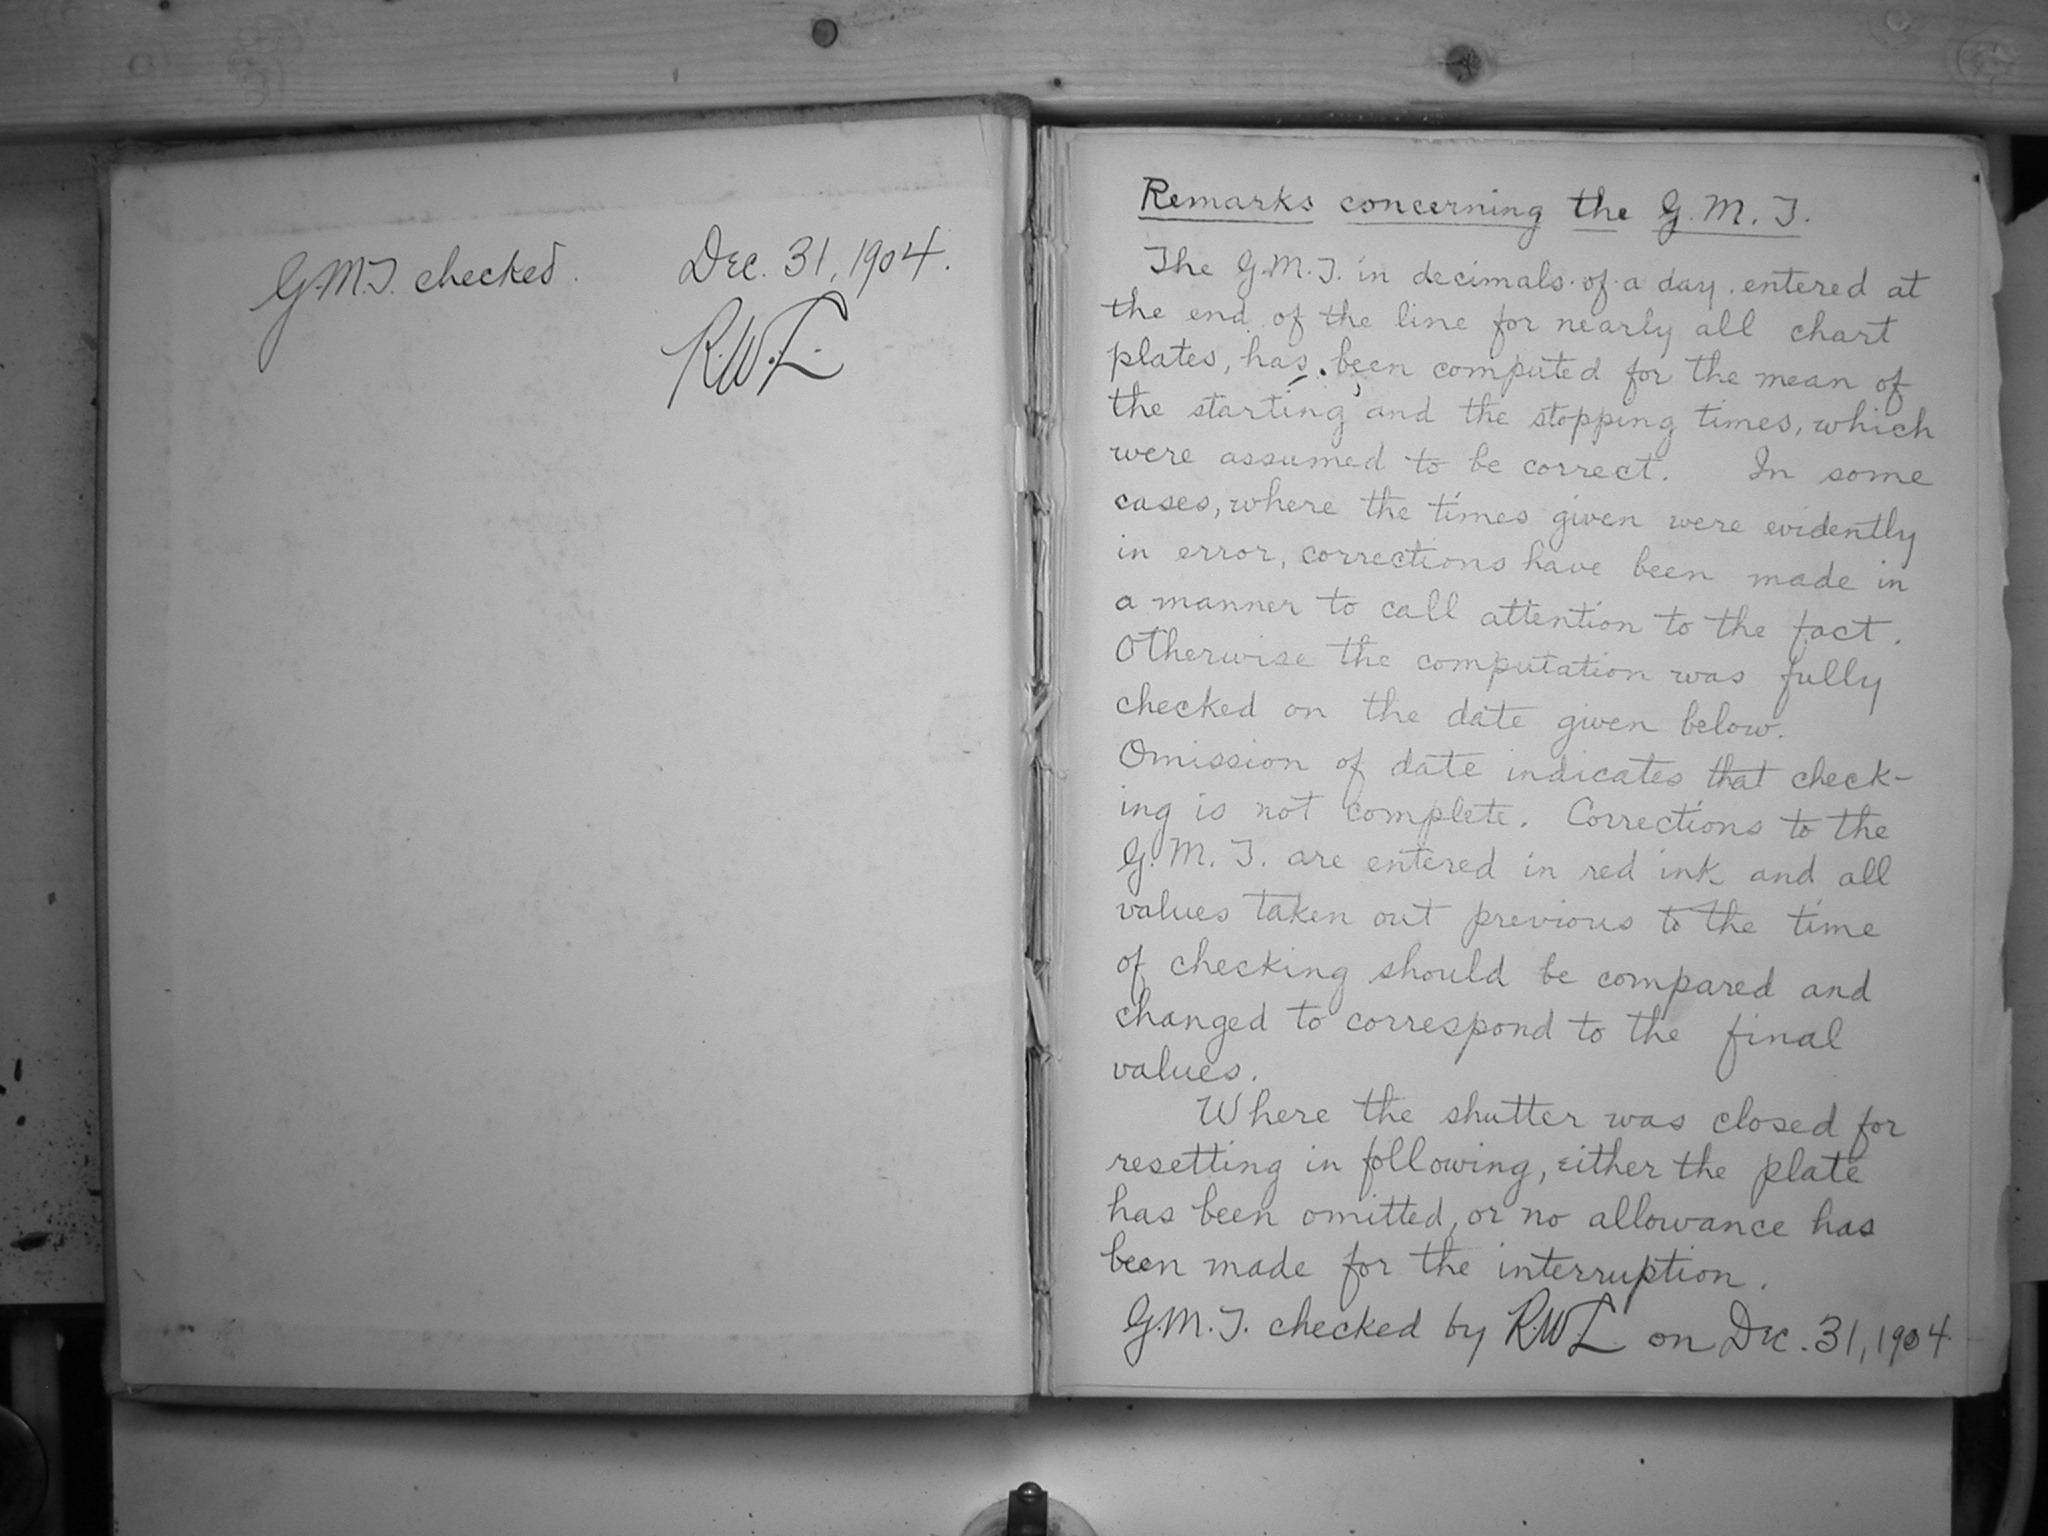 G.M.T. checked. Dec. 31, 1904.
R.W.L.
Remarks concerning the G.M.T.
The G.M.T. in decimals of a day entered at
the end of the line for nearly all chart
plates, has been computed for the mean of
the starting and the stopping times, which
were assumed to be correct. In some
cases, where the times given were evidently
in error, corrections have been made in
a manner to call attention to the fact.
Otherwise the computation was fully
checked on the date given below.
Omission of date indicates that check-
ing is not complete. Corrections to the
G.M.T. are entered in red ink and all
values taken out previous to the time
of checking should be compared and
changed to correspond to the final
values.
Where the shutter was closed for
resetting in following, either the plate
has been omitted, or no allowance has
been made for the interruption.
G.M.T. checked by R.W.L. on Dec. 31, 1904